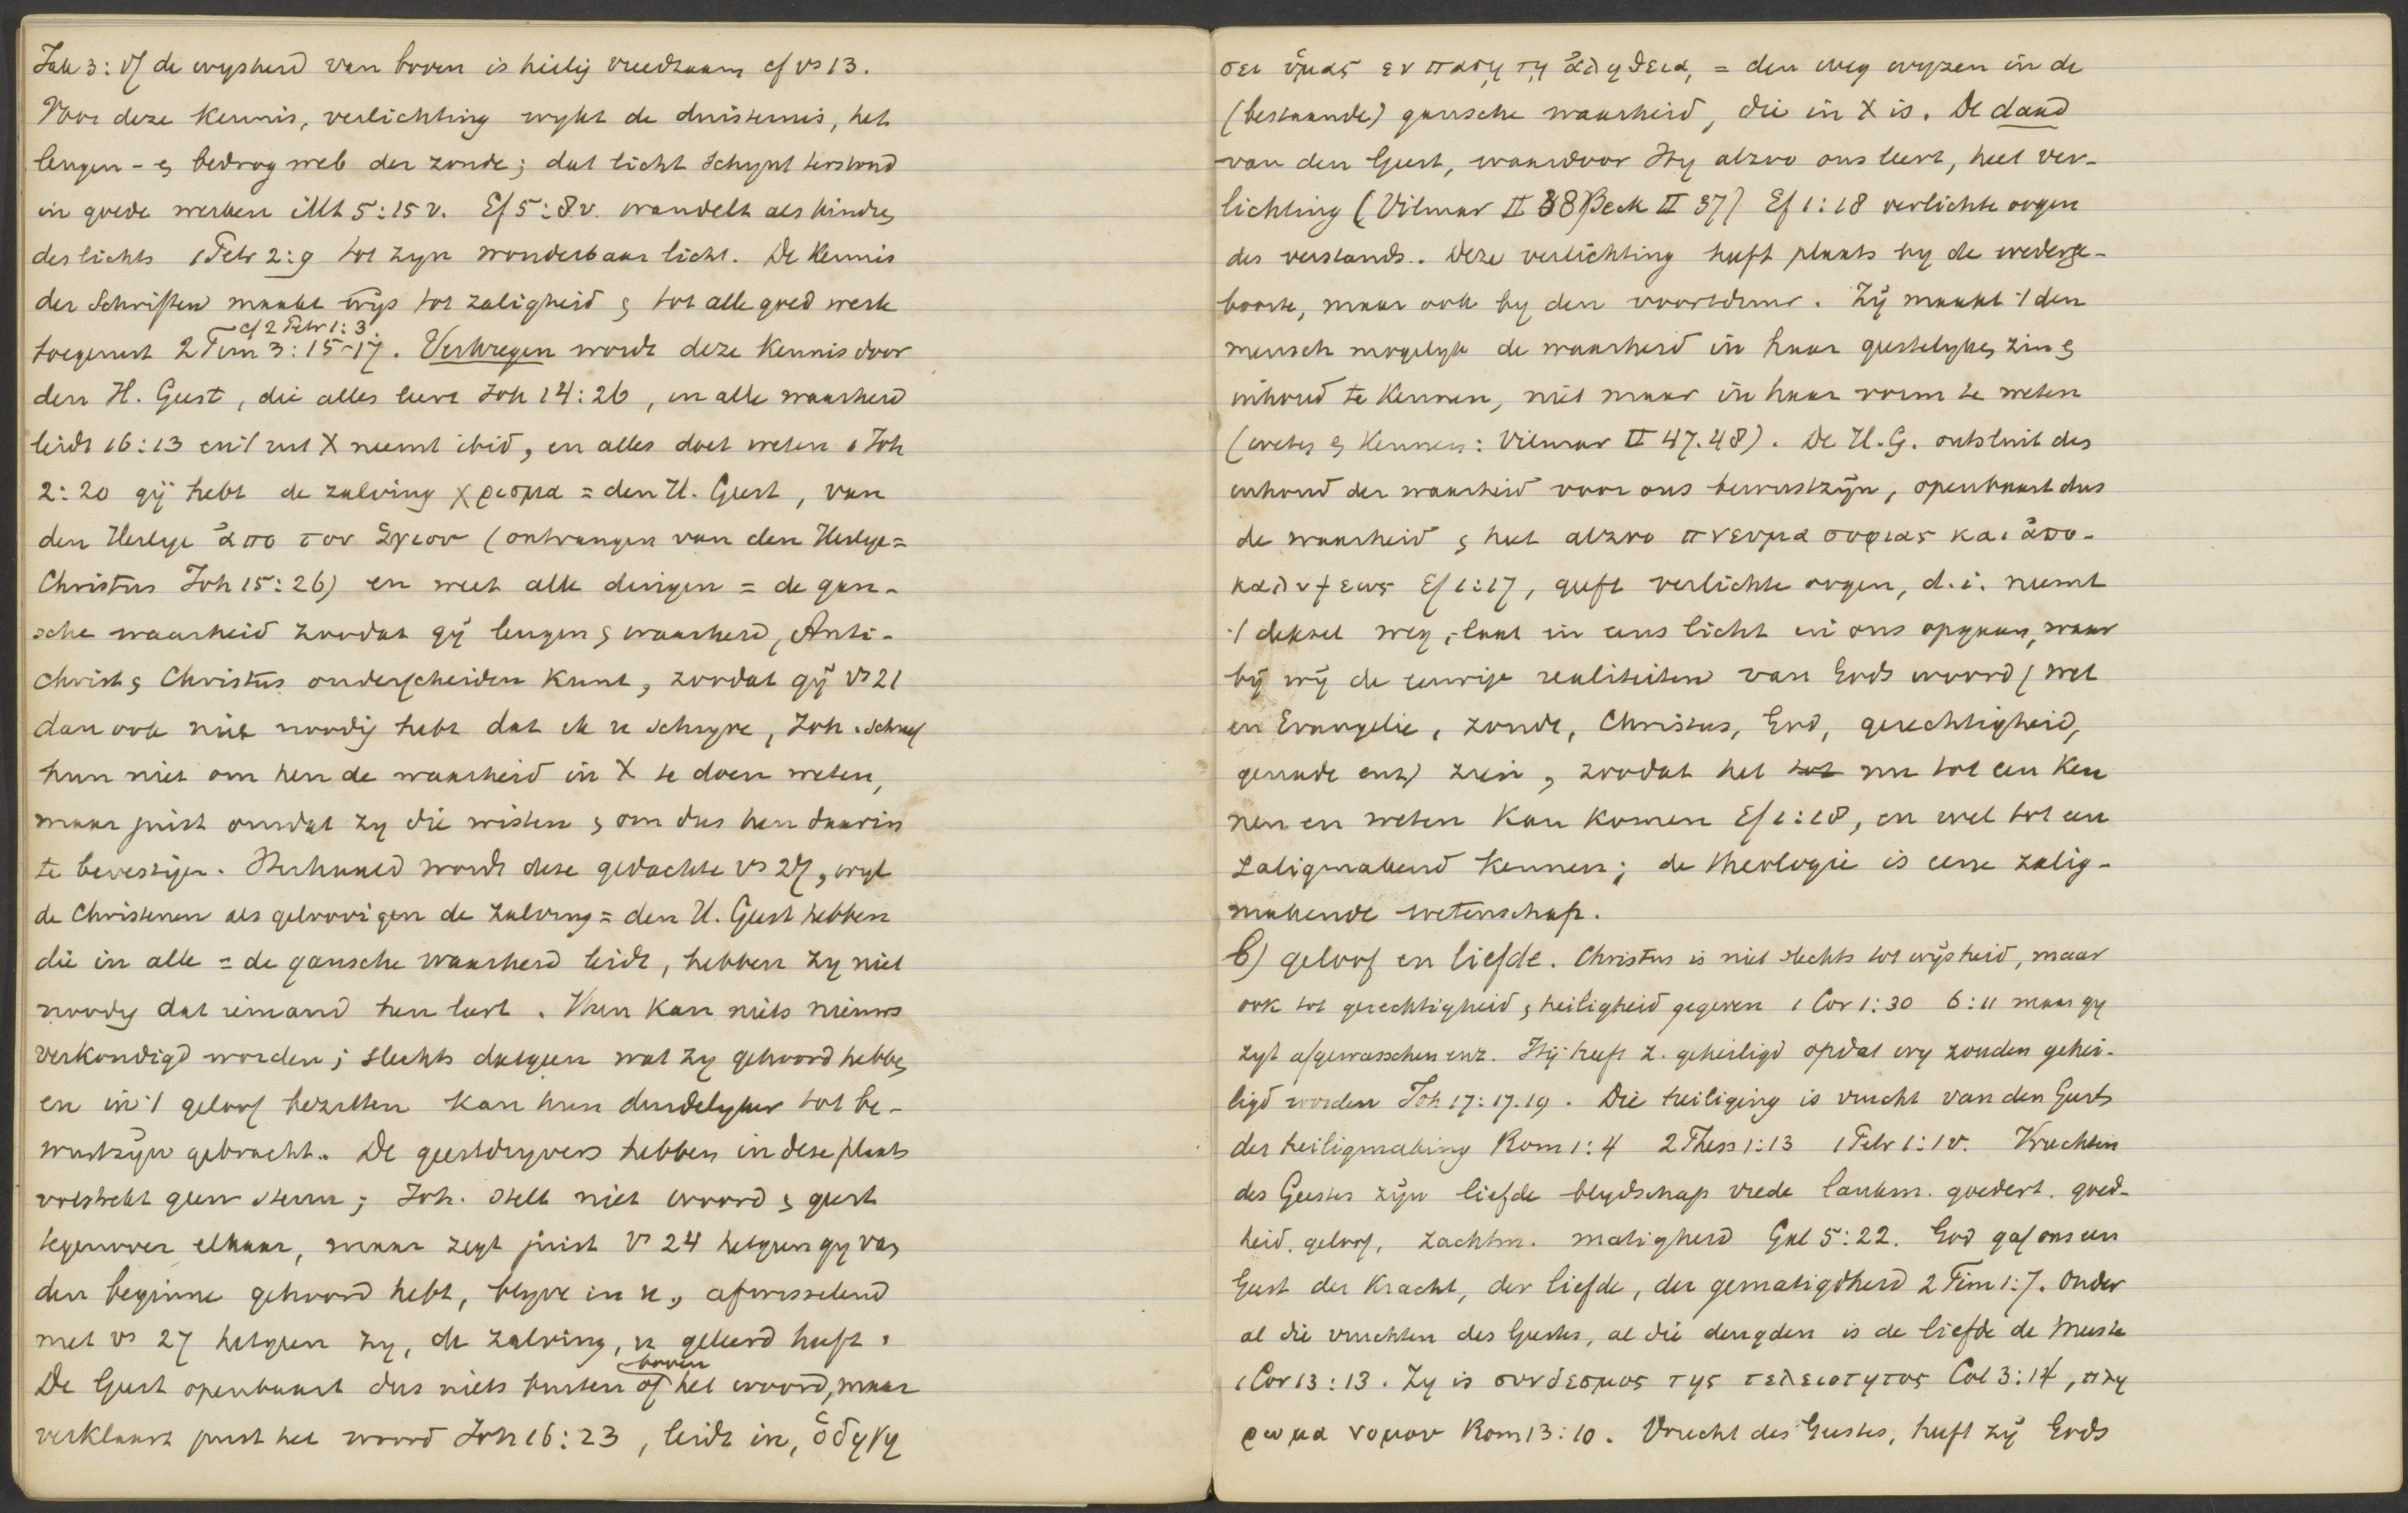 Jak 3:17 de wysheid van boven is heilig vreedzaam cf vs 13.
Voor deze kennis, verlichting wykt de duisternis, het
leugen- & bedrog web der zonde; dat licht schynt terstond
in goede werken Mt 5:15 v. Ef 5:8 v. wandelt als kindren
des lichts 1 Petr 2:9 tot zyn wonderbaar licht. De kennis
der Schriften maakt wijs tot zaligheid & tot alle goed werk
cf 2 Petr 1:3
toegerust 2 Tim 3:15-17. Verkregen wordt deze kennis door
den H. Geest, die alles leert Joh 14:26, in alle waarheid
leidt 16:13 en 't uit X neemt ibid, en alles doet weten 1 Joh
2:20 gij hebt de zalving χρισμα = den H. Geest, van
den Heilige ἀπο του ἁγιου (ontvangen van den Heilige =
Christus Joh 15:26) en weet alle dingen = de gan-
sche waarheid zoodat gij leugen & waarheid, Anti-
christ & Christus onderscheiden kunt, zoodat gij vs 21
dan ook niet noodig hebt dat ik u schryve, Joh. schreef
hun niet om hen de waarheid in X te doen weten,
maar juist omdat zy die wisten & om dus hen daarin
te bevestigen. Herhaald wordt deze gedachte vs 27, wyl
de Christenen als geloovigen de zalving = den H. Geest hebben
die in alle = de gansche waarheid leidt, hebben zy niet
noodig dat iemand hen leert. Hun kan niets nieuws
verkondigd worden; slechts datgeen wat zy gehoord hebben
en in 't geloof bezitten kan hun duidelyker tot be-
wustzijn gebracht. De geestdryvers hebben in deze plaats
volstrekt geen steun; Joh. stelt niet woord & geest
tegenover elkaar, maar zegt juist vs 24 hetgeen gy van
den beginne gehoord hebt, blyve in u, afwisselend
met vs 27 hetgeen zy, de zalving, u geleerd heeft.
boven
De Geest openbaart dus niets buiten of het woord, maar
verklaart juist het woord Joh 16:23, leidt in, ὁδηγη
σει ὑμας εν πασῃ τῃ ἀληθειᾳ, = den weg wyzen in de
(bestaande) gansche waarheid, die in X is. De daad
van den Geest, waardoor Hy alzoo ons leert, heet ver-
lichting (Vilmar II 38 Beck II 37) Ef 1:18 verlichte oogen
des verstands. Deze verlichting heeft plaats by de wederge-
boorte, maar ook by den voortduur. Zij maakt 't den
mensch mogelyk de waarheid in haar geestelyken zin &
inhoud te kennen, niet maar in haar vorm te weten
(weten & kennen: Vilmar II 47.48). De H.G. ontsluit des
inhoud der waarheid voor ons bewustzijn, openbaart dus
de waarheid & heet alzoo πνευμα σοφιας και ἀπο-
καλυψεως Ef 1:17, geeft verlichte oogen, d.i. neemt
't deksel weg, laat in eens licht in ons opgaan, waar
bij wij de eeuwige realiteiten van Gods woord (wet
en Evangelie, zonde, Christus, God, gerechtigheid,
genade enz) zien, zoodat het tot nu tot een ken
nen en weten kan komen Ef 1:18, en wel tot een
zaligmakend kennen; de theologie is eene zalig-
makende wetenschap.
b) geloof en liefde. Christus is niet slechts tot wijsheid, maar
ook tot gerechtigheid & heiligheid gegeven 1 Cor 1:30 6:11 maar gy
zyt afgewasschen enz. Hij heeft z. geheiligd opdat wy zouden gehei-
ligd worden Joh 17:17.19. Die heiliging is vrucht van den Geest
der heiligmaking Rom 1:4 2 Thess 1:13 1 Petr 1:1 v. Vruchten
des Geestes zijn liefde blydschap vrede lankm. goedert. goed-
heid, geloof, zachtm. matigheid Gal 5:22. God gaf ons een
Geest der kracht, der liefde, der gematigdheid 2 Tim 1:7. Onder
al die vruchten des Geestes, al die deugden is de liefde de meeste
1 Cor 13:13. Zy is συνδεσμος της τελειοτητος Col 3:14, πλη
ρωμα νομου Rom 13:10. Vrucht des Geestes, heeft zij Gods